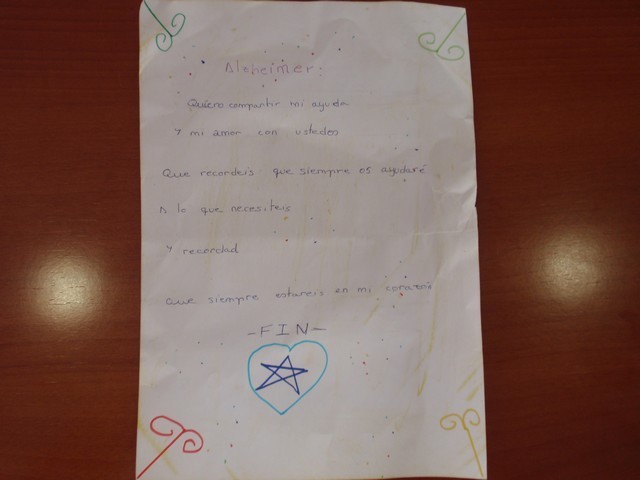 Alzheimer.
Quiero compartir mi ayuda
Y mi amor con ustedes
Que recordeis que siempre os ayudaré
A lo que necesiteis
Y recordad
que siempre estareis en mi corazón
-FIN-